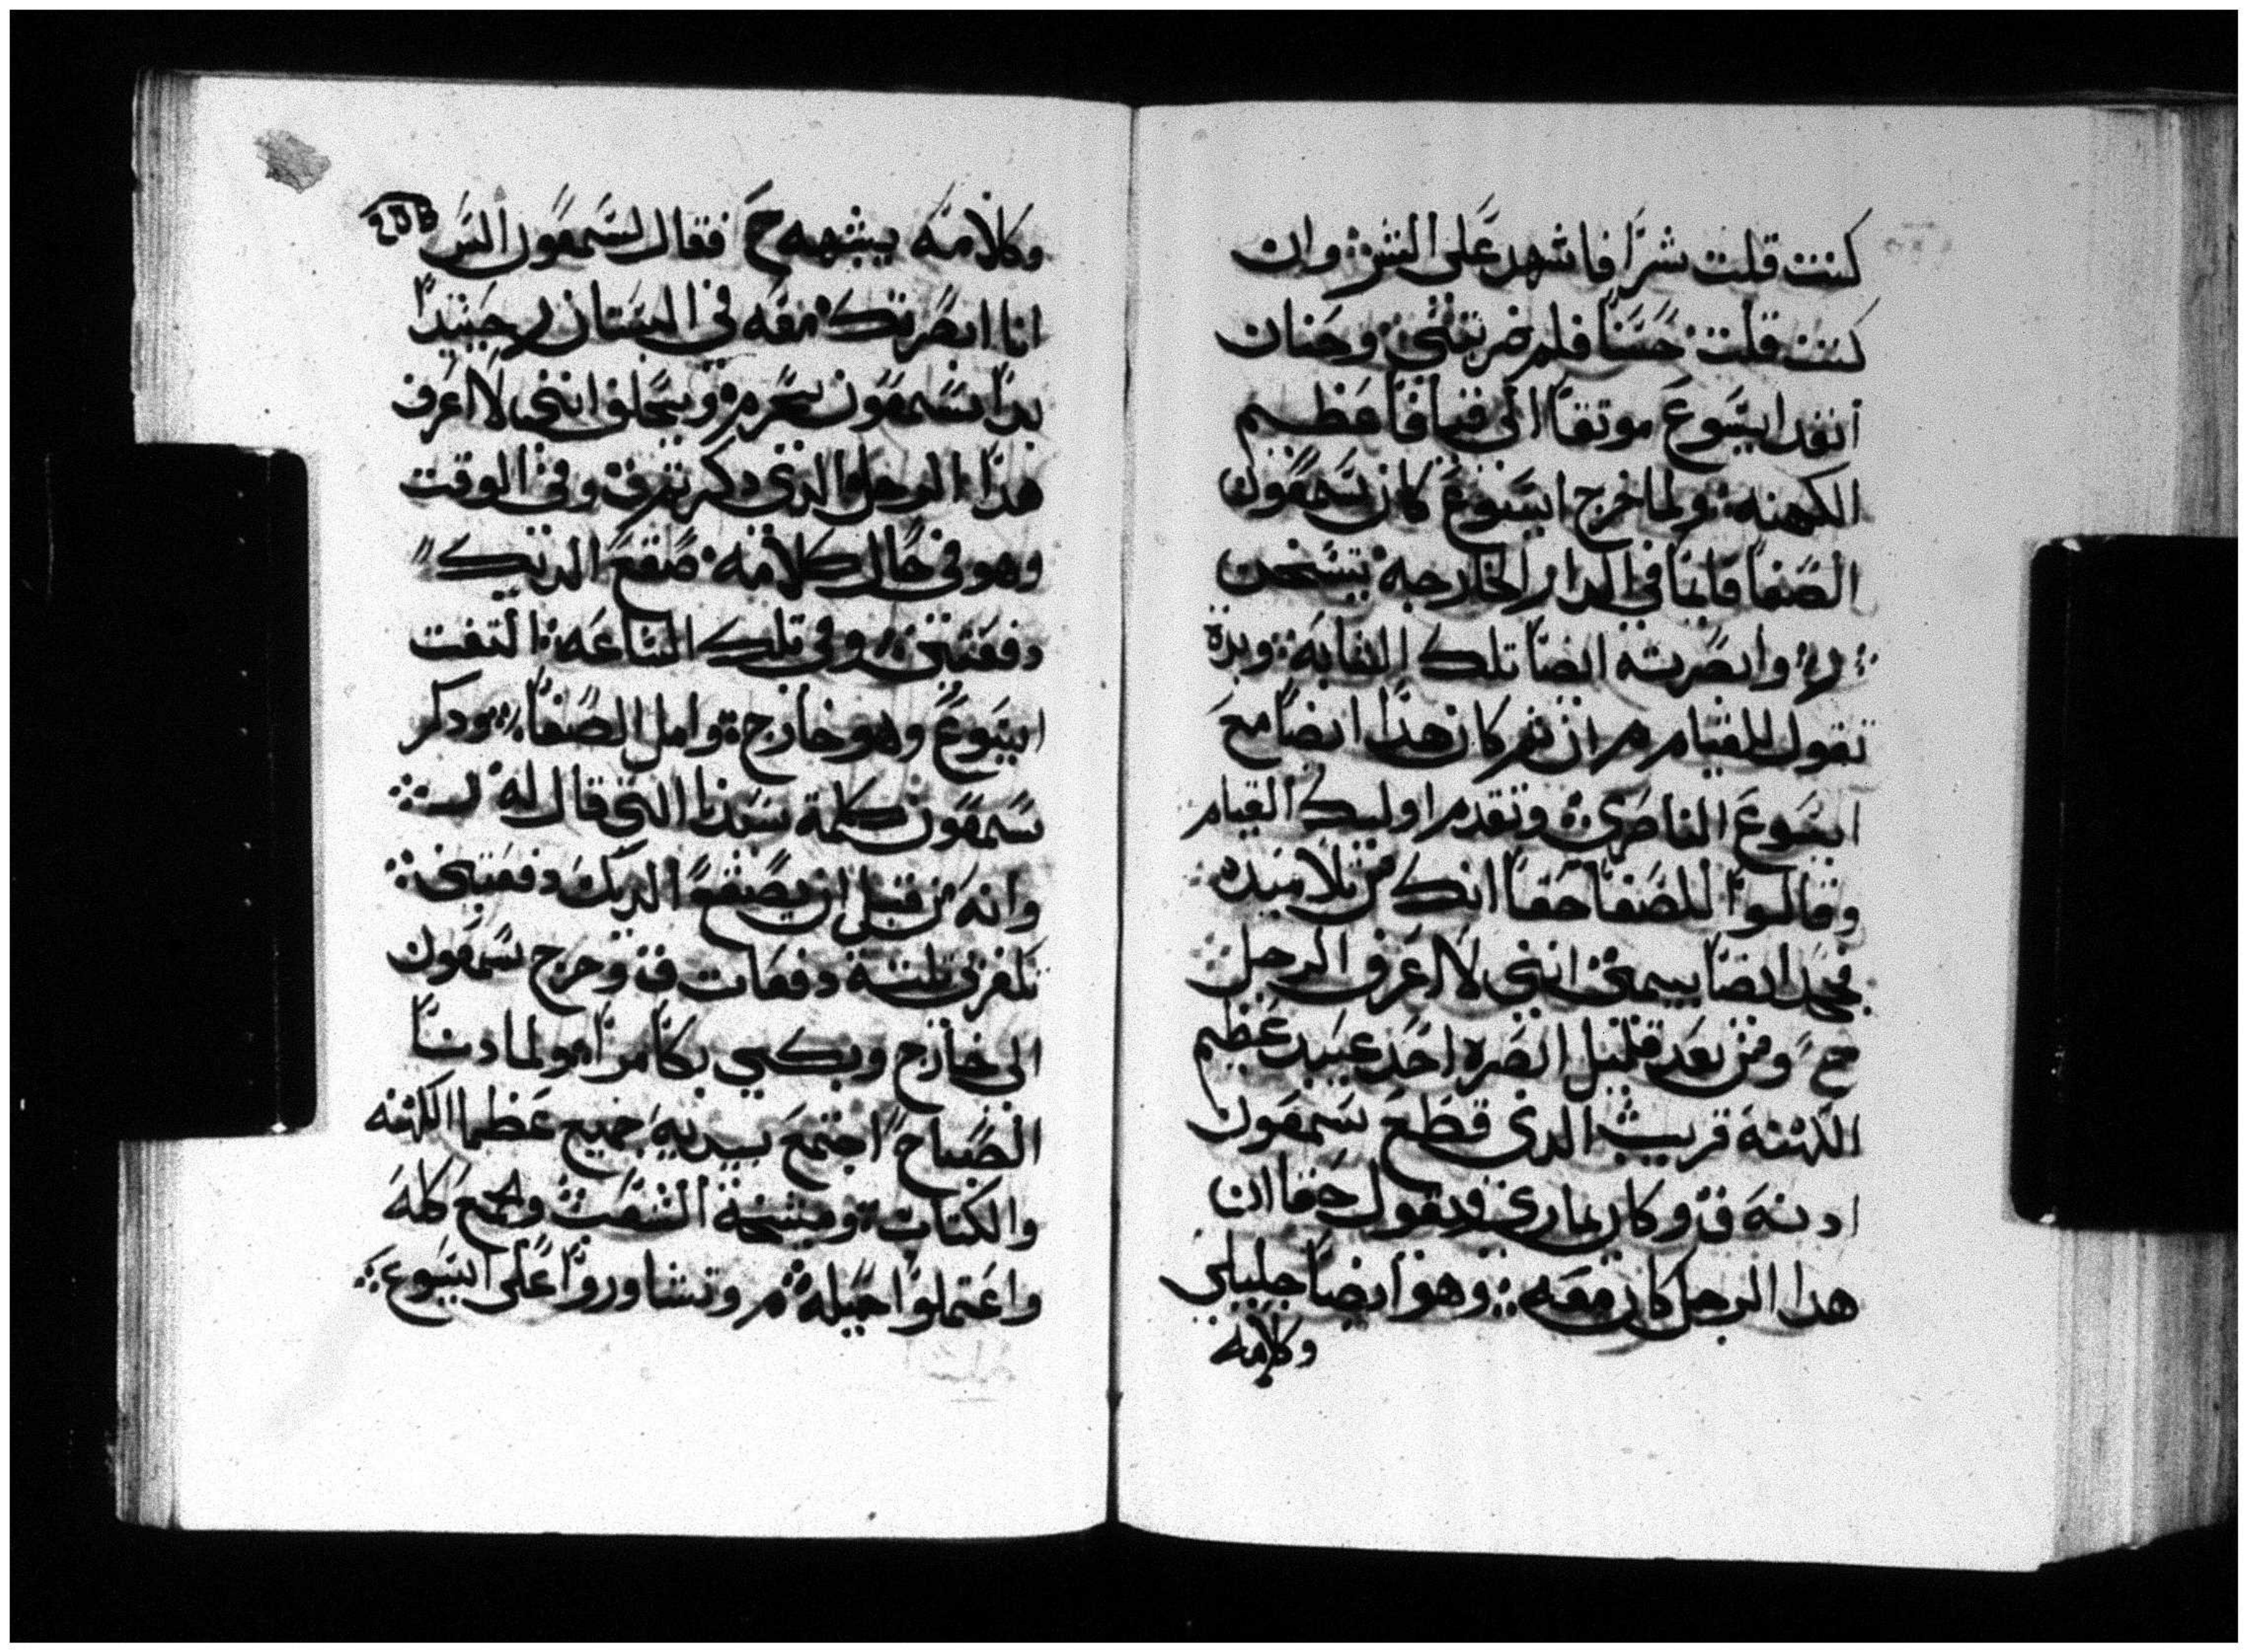 كنت قلت شرا فاشهد على الشر وان
كنت قلت حسنا فلم ضربتني وحنان
انفد ايسوع موتقا الى قيافا عظيم
الكهنه ولما خرج ايسوع كان سمعون
الصفا قايما في الدار الخارجه يتسخن
ر وابصرته ايضا تلك الشابه وبدة
تقول للقيام م ان كان هدا ايضا مع
ايسوع الناصري وتقدم اوليك القيام
وقالوا للصفا حقا انك من تلاميده
فجحد ايضا بيمين انني لا اعرف الرجل
مح ومن بعد قليل ابصره احد عبيد عظيم
الكهنه قريب الدي قطع سمعون
ادنه ق وكان يماري ويقول حقا ان
هدا الرجل كان معه وهو ايضا جليلي
وكلامه
وكلامه يشبهه ح فقال لسمعون اليس
انا ابصرتك معه في البستان ر حينيدا
بدا سمعون يحرم ويحلف انني لا اعرف
هدا الرجل الدي دكرتم ق وفي الوقت
وهو في حال كلامه صقع الديك
دفعتين وفي تلك الساعه التفت
ايسوع وهو خارج وامل الصفا ودكر
سمعون كلمة سيدنا التي قال له ر
وانه من قبل ان يصقع الديك دفعتين
تكفر بي تلتة دفعات ق وخرج سمعون
الى خارج وبكى بكا مرا ولما دنا
الصباح اجتمع جميع عظما الكهنه
والكتاب ومشيخة الشعب والجمع كله
واعتملوا حيله م وتشاوروا على ايسوع